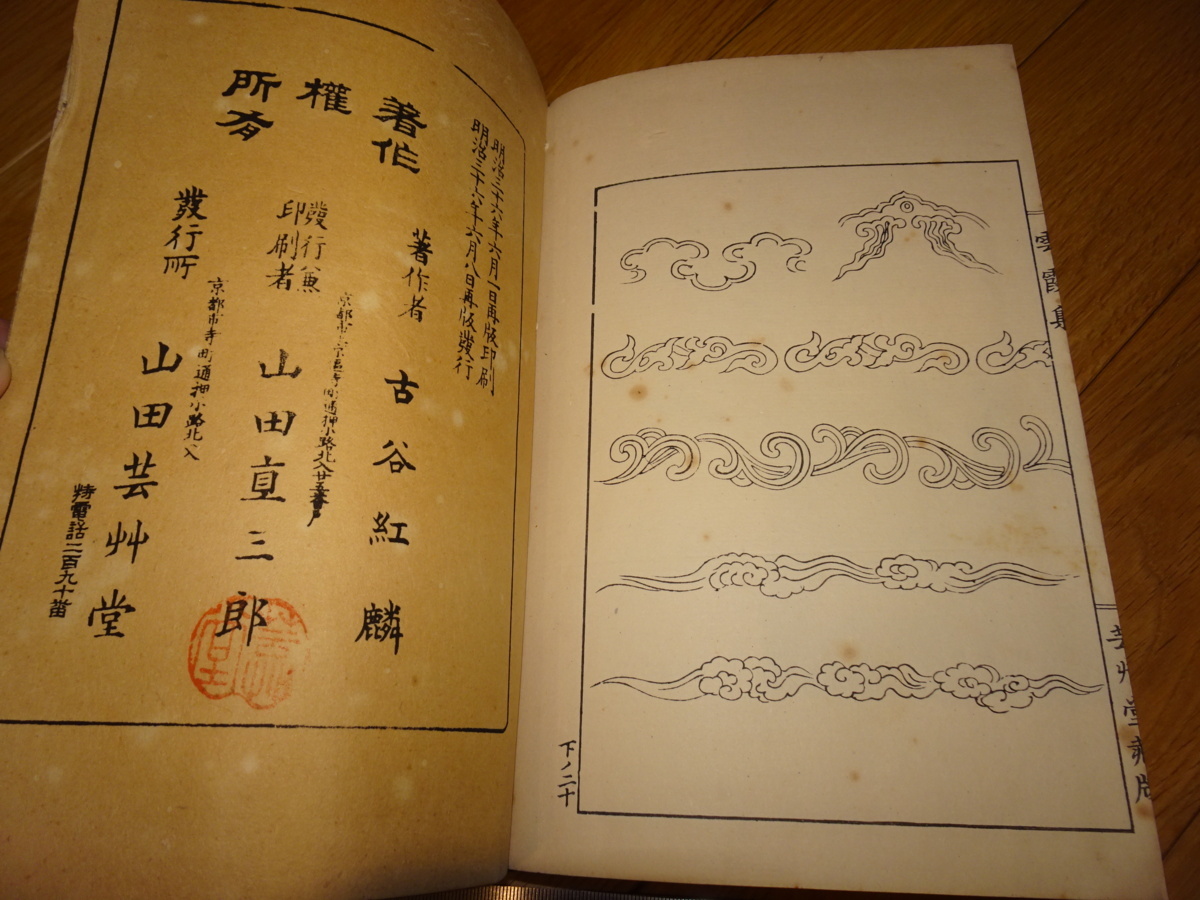 雲霞集
芸艸堂蔵版
下ノ二十
明治三十六年六月一日再版印刷
明治三十六年六月八日再版發行
著作
權
所有
著作者
古谷紅麟
發行兼
印刷者
京都市上京區寺町通押小路北入廿五番戸
山田直三郎
發行所
京都市寺町通押小路北入
山田芸艸堂
特電話二百九十番
芸艸堂